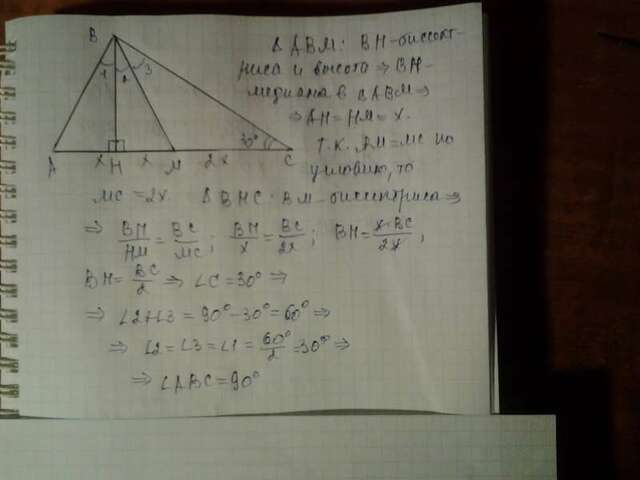 B
1 2 3
30°
A x H x M 2x C
Δ ABM: BH - биссект-
риса и высота ⇒ BH -
медиана в ΔABM ⇒
⇒ AH = HM = x.
Т.к. AM = MC по
условию, то
MC = 2x. Δ BHC: BM - биссектриса ⇒
⇒ BH/HM = BC/MC; BH/x = BC/2x; BH = x·BC/2x;
BH = BC/2 ⇒ ∠C = 30° ⇒
⇒ ∠2+∠3 = 90° - 30° = 60° ⇒
⇒ ∠2 = ∠3 = ∠1 = 60°/2 = 30° ⇒
⇒ ∠ABC = 90°